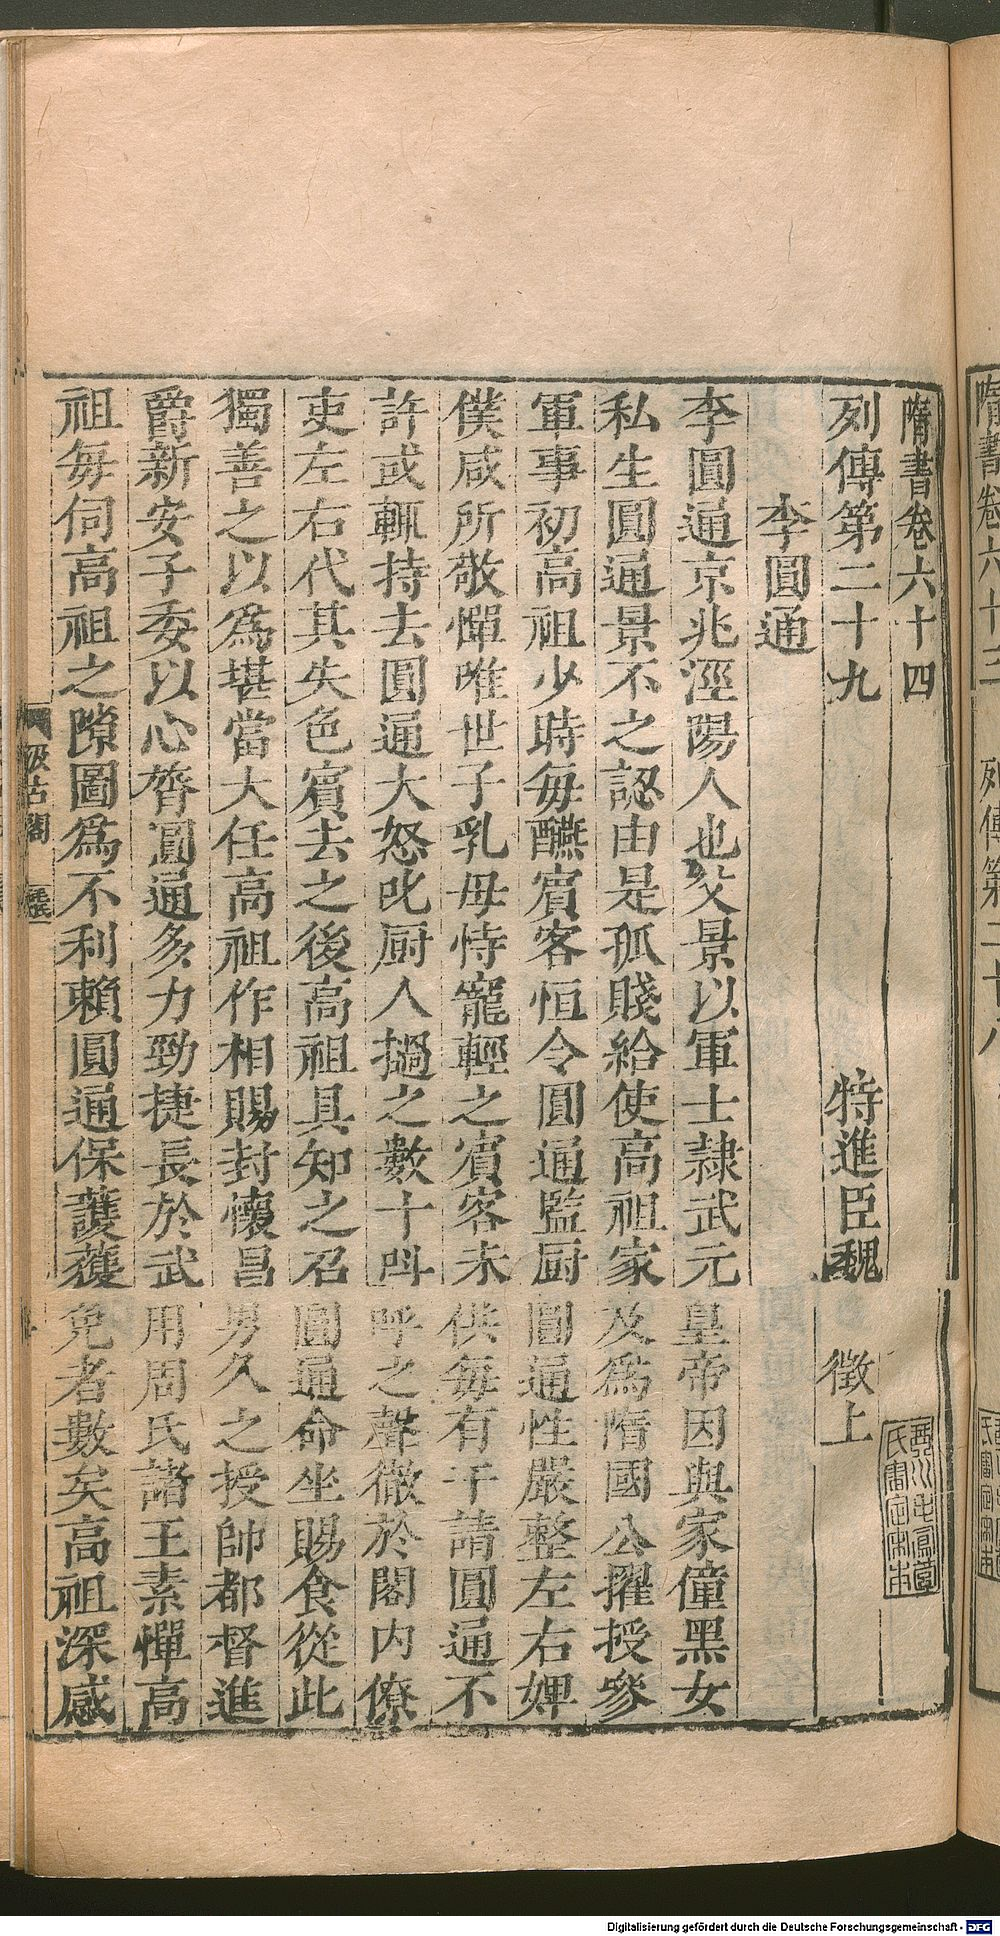 隋書卷六十四
列傳第二十九
特進臣魏　徵上
李圓通
李圓通京兆涇陽人也父景以軍士隷武元皇帝因與家僮黑女
私生圓通景不之認由是孤賤給使高祖家及爲隋國公擢授參
軍事初高祖少時每醼賓客恒令圓通監厨圓通性嚴整左右婢
僕咸所敬憚唯世子乳母恃寵輕之賓客未供每有干請圓通不
許或輒持去圓通大怒叱厨人撾之數十叫呼之聲徹於閤内僚
吏左右代其失色賓去之後高祖具知之召圓通命坐賜食從此
獨善之以爲堪當大任高祖作相賜封懷昌男久之授帥都督進
爵新安子委以心膂圓通多力勁捷長於武用周氏諸王素憚高
祖每伺高祖之隙圖爲不利賴圓通保護獲免者數矣高祖深感
汲古閣
隋書卷六十三
列傳第二十八
Digitalisierung gefördert durch die Deutsche Forschungsgemeinschaft - DFG